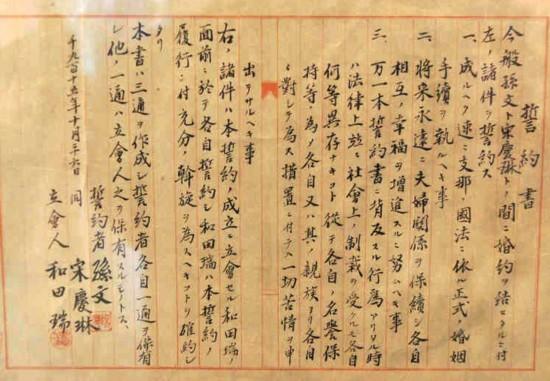 誓約書
今般孫文ト宋慶琳トノ間ニ婚約ヲ諾セタルニ付
左ノ諸件ヲ誓約ス
一、成ルヘク速ニ支那ノ國法ニ依ル正式ノ婚姻
手續ヲ執ルヘキ事
二、将来永遠ニ夫婦関係ヲ保續シ各自
相互ノ幸福ノ増進スルニ努ムヘキ事
三、万一本誓約書ニ背反スル行為アリタル時
ハ法律上並ニ社會上ノ制裁ヲ受クルモ各自
何等異存ナキコト從テ各自ノ名譽保
持等ノ為メ各自又ハ其ノ親族ヨリ各自
ニ對シテ為ス措置ニ付テハ一切苦情ヲ申
出テサルヘキ事
右ノ諸件ハ本誓約ノ成立ニ立會セル和田瑞ノ
面前ニ於テ各自誓約シ和田瑞ハ本誓約ノ
履行ニ付充分ノ斡旋ヲ為スヘキコトヲ確約シ
タリ
本書ハ三通ヲ作成シ誓約者各自一通ヲ保有
シ他ノ一通ハ立會人之ヲ保有スルモノトス、
千九百十五年十月二十六日
誓約者 孫文
同 宋慶琳
立會人 和田瑞